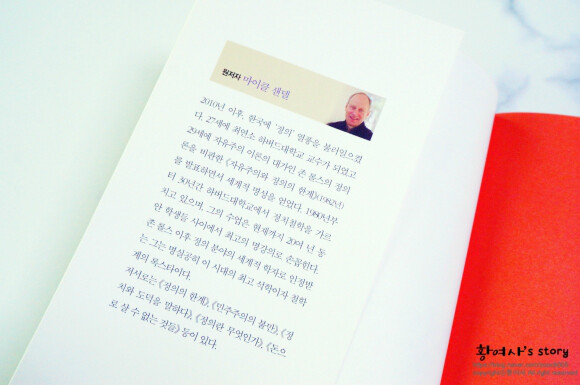 원저자 마이클 샌델
2010년 이후, 한국에 '정의' 열풍을 불러일으켰
다. 27세에 최연소 하버드대학교 교수가 되었고
29세에 자유주의 이론의 대가인 존 롤스의 정의
론을 비판한 《자유주의와 정의의 한계》(1982년)
를 발표하면서 세계적 명성을 얻었다. 1980년부
터 30년간 하버드대학교에서 정치철학을 가르
치고 있으며, 그의 수업은 현재까지 20여 년 동
안 학생들 사이에서 최고의 명강의로 손꼽힌다.
존 롤스 이후 정의 분야의 세계적 학자로 인정받
는 그는 명실공히 이 시대의 최고 석학이자 철학
계의 록스타이다.
저서로는 《정의의 한계》, 《민주주의의 불만》, 《정
치와 도덕을 말하다》, 《정의란 무엇인가》, 《돈으
로 살 수 없는 것들》 등이 있다.
황여사's story